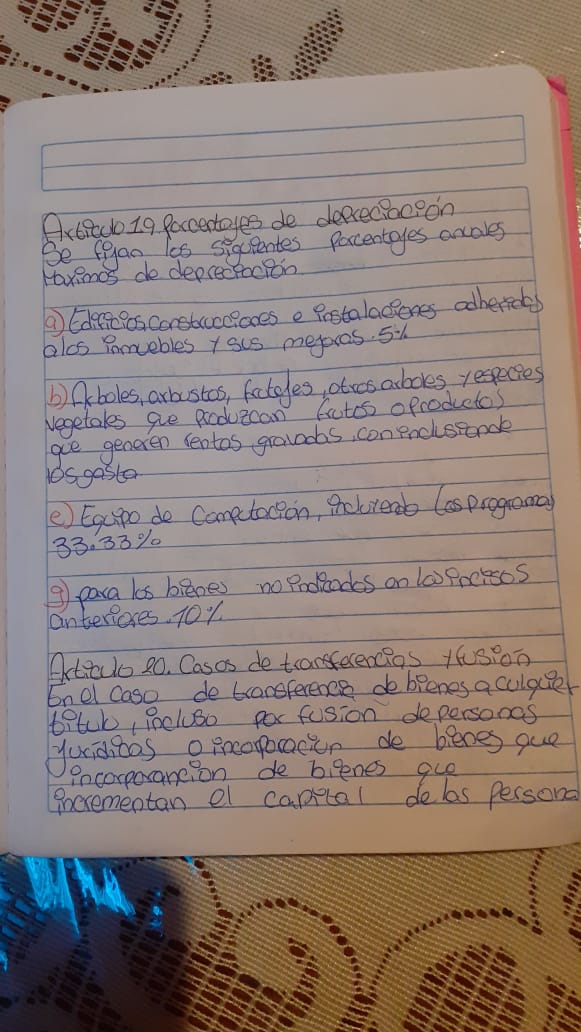 Articulo 19 Porcentajes de depreciación
Se fijan los siguientes porcentajes anuales
Maximos de depreciación
a) Edificios, construcciones e instalaciones adheridas
a los inmuebles y sus mejoras. 5%
b) Arboles, arbustos, frutales, otros arboles y especies
vegetales que produzcan frutos o productos
que generen rentas gravadas, con inclusion de
los gasta
e) Equipo de Computación, incluiendo los programas
33.33%
g) para los bienes no indicados en los incisos
anteriores. 10%
Articulo 20. Casos de transferencias y fusión
En el caso de transferencia de bienes a culquier
titulo, incluso por fusion de personas
juridicas o incorporacion de bienes que
incorporancion de bienes que
incrementan el capital de las persona